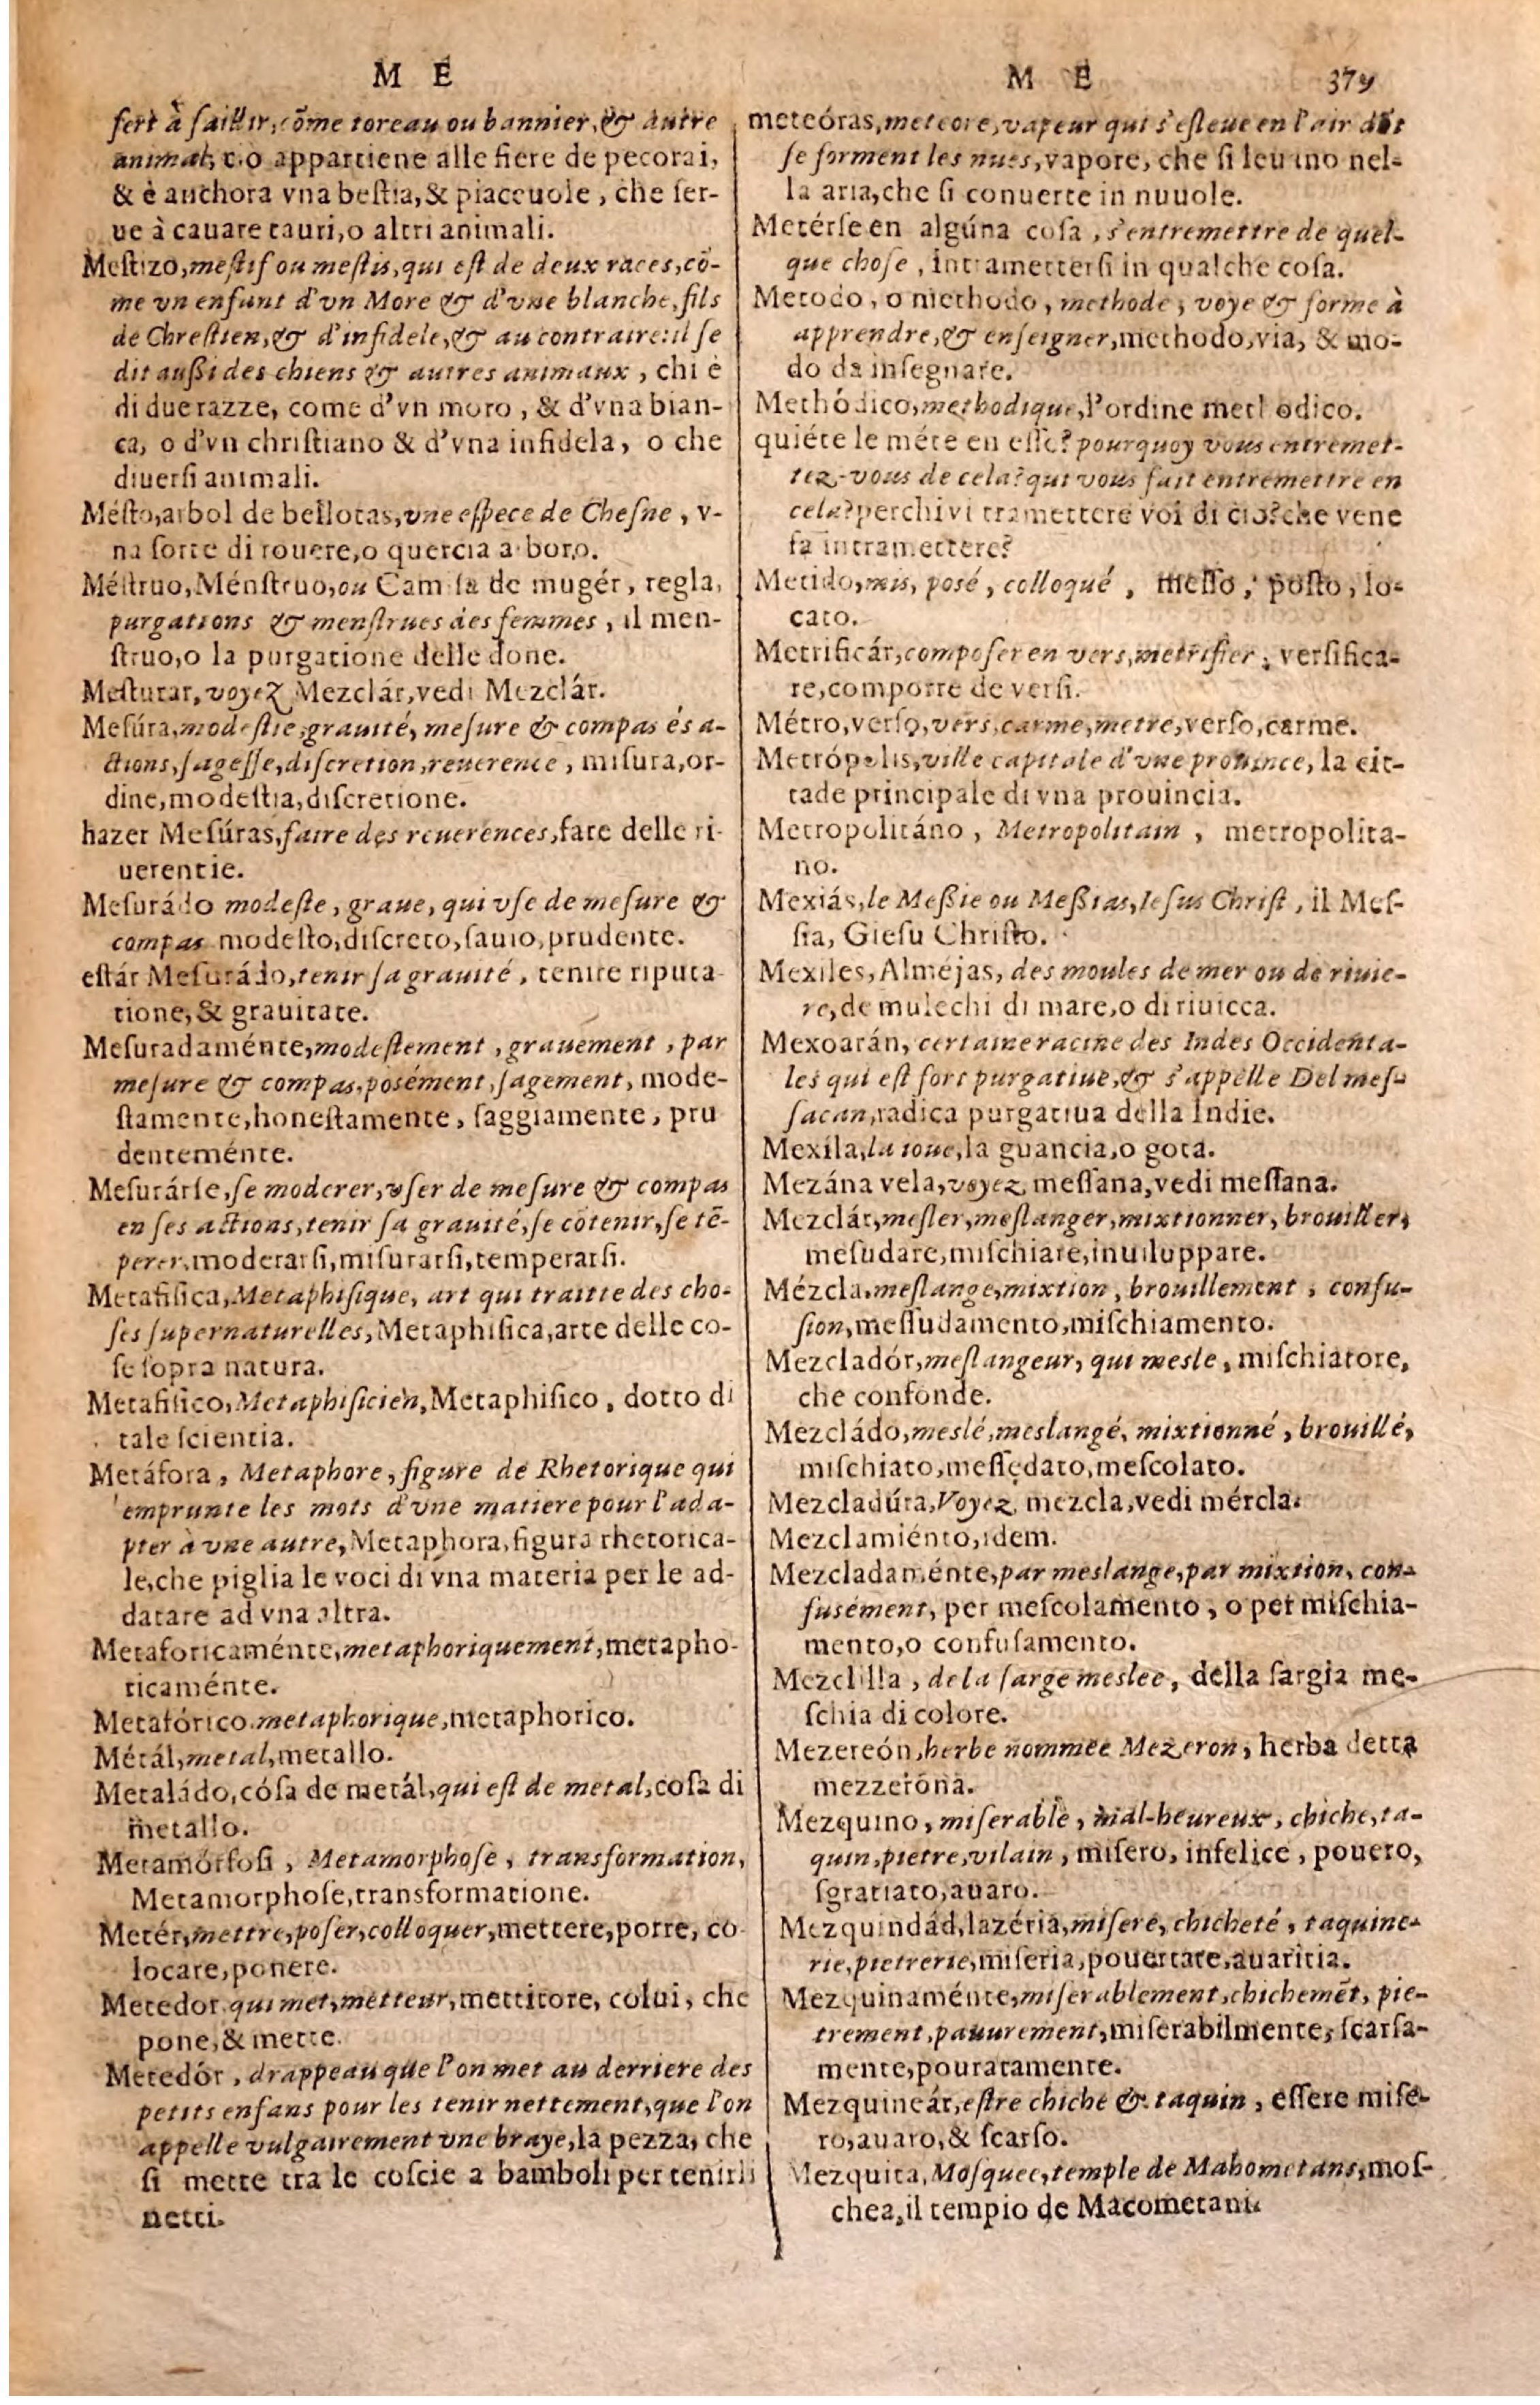 M E
sert à saillir, cõme toreau ou bannier, & autre
animal, c.o appartiene alle fiere de pecorai,
& è anchora vna bestia, & piaceuole, che ser-
ue à cauare tauri, o altri animali.
Mestizo, mestif ou mestis, qui est de deux races, cõ-
me vn enfant d'vn More & d'vne blanche, fils
de Chrestien, & d'infidele, & au contraire: il se
dit aussi des chiens & autres animaux, chi è
di due razze, come d'vn moro, & d'vna bian-
ca, o d'vn christiano & d'vna infidela, o che
diuersi animali.
Mésto, arbol de bellotas, vne espece de Chesne, v-
na sorte di rouere, o quercia a boro.
Méstruo, Ménstruo, ou Camisa de mugér, regla,
purgations & menstrues des femmes, il men-
struo, o la purgatione delle done.
Mesturar, voyez Mezclár, vedi Mezclár.
Mesúra, modestie, grauité, mesure & compas és a-
ctions, sagesse, discretion, reuerence, misura, or-
dine, modestia, discretione.
hazer Mesúras, faire des reuerences, fare delle ri-
uerentie.
Mesurádo modeste, graue, qui vse de mesure &
compas modesto, discreto, sauio, prudente.
estár Mesurádo, tenir sa grauité, tenire riputa
tione, & grauitate.
Mesuradaménte, modestement, grauement, par
mesure & compas, posément, sagement, mode-
stamente, honestamente, saggiamente, pru
denteménte.
Mesurárse, se moderer, vser de mesure & compas
en ses actions, tenir sa grauité, se cõtenir, se tẽ-
perer, moderarsi, misurarsi, temperarsi.
Metafisica, Metaphisique, art qui traitte des cho-
ses supernaturelles, Metaphisica, arte delle co-
se sopra natura.
Metafisico, Metaphisicien, Metaphisico, dotto di
tale scientia.
Metáfora, Metaphore, figure de Rhetorique qui
emprunte les mots d'vne matiere pour l'ada-
pter à vne autre, Metaphora, figura rhetorica-
le, che piglia le voci di vna materia per le ad-
datare ad vna altra.
Metaforicaménte, metaphoriquement, metapho-
ricaménte.
Metafórico. metaphorique, metaphorico.
Métál, metal, metallo.
Metaládo, cósa de metál, qui est de metal, cosa di
metallo.
Metamórfosi, Metamorphose, transformation,
Metamorphose, transformatione.
Metér, mettre, poser, colloquer, mettere, porre, co
locare, ponere.
Metedor. qui met, metteur, mettitore, colui, che
pone, & mette.
Metedór, drappeau que l'on met au derriere des
petits enfans pour les tenir nettement, que l'on
appelle vulgairement vne braye, la pezza, che
si mette tra le coscie a bamboli per tenirli
netti.
M E 379
meteóras, meteore, vapeur qui s'esleue en l'air dõt
se forment les nues, vapore, che si leuano nel-
la aria, che si conuerte in nuuole.
Metérse en algúna cosa, s'entremettre de quel-
que chose, intramettersi in qualche cosa.
Metodo, o methodo, methode, voye & forme à
apprendre, & enseigner, methodo, via, & mo-
do da insegnare.
Methódico, methodique, l'ordine methodico.
quiéte le méte en esse? pourquoy vous entremet-
tez-vous de cela? qui vous fait entremettre en
cela? perchi vi tramettere voi di cio? che vene
fa intramettere?
Metido, mis, posé, colloqué, messo, posto, lo-
cato.
Metrificár, composer en vers, metrifier, versifica-
re, comporre de versi.
Métro, verso, vers, carme, metre, verso, carme.
Metrópolis, ville capitale d'vne prouince, la cit-
tade principale di vna prouincia.
Metropolitáno, Metropolitain, metropolita-
no.
Mexiás, le Messie ou Messias, Iesus Christ, il Mes-
sia, Giesu Christo.
Mexiles, Alméjas, des moules de mer ou de riuie-
re, de mulechi di mare, o di riuicca.
Mexoarán, certaine racine des Indes Occidenta-
les qui est fort purgatiue, & s'appelle Del mes-
sacan, radica purgatiua della Indie.
Mexíla, la ioue, la guancia, o gota.
Mezána vela, voyez messana, vedi messana.
Mezclár, mesler, meslanger, mixtionner, brouiller,
mesudare, mischiare, inuiluppare.
Mézcla, meslange, mixtion, brouillement, confu-
sion, messudamento, mischiamento.
Mezcladór, meslangeur, qui mesle, mischiatore,
che confonde.
Mezcládo, meslé, meslangé, mixtionné, brouillé,
mischiato, messedato, mescolato.
Mezcladúra, Voyez mezcla, vedi mércla.
Mezclamiénto, idem.
Mezcladaménte, par meslange, par mixtion, con-
fusément, per mescolamento, o per mischia-
mento, o confusamento.
Mezclilla, de la sarge meslee, della sargia me-
schia di colore.
Mezereón, herbe nommee Mezeron, herba detta
mezzeróna.
Mezquino, miserable, mal-heureux, chiche, ta-
quin, pietre, vilain, misero, infelice, pouero,
sgratiato, auaro.
Mezquindád, lazéria, misere, chicheté, taquine-
rie, pietrerie, miseria, pouertate, auaritia.
Mezquinaménte, miserablement, chichemẽt, pie-
trement, pauurement, miserabilmente, scarsa-
mente, pouratamente.
Mezquineár, estre chiche & taquin, essere mise-
ro, auaro, & scarso.
Mezquita, Mosquee, temple de Mahometans, mos-
chea, il tempio de Macometani.